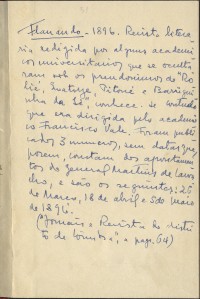 Flanando - 1896. Revista literá
ria redigida por alguns academi
cos universitarios que se oculta
ram sob os pseudonimos de "Ro
 e Barrigui
nha da Sé", conhece-se contudo
que era dirigida pelo academi
co Francisco Vale. Foram publi
cados 3 numeros, sem data que,
porem, constam dos apontamentos
do General Martins de Carva
lho, e são os seguintes: 26
de Março, 18 de abril e 5 de Maio
de 1896.
("Jornais e Revistas do distri
to de Coimbra", a page. 64)